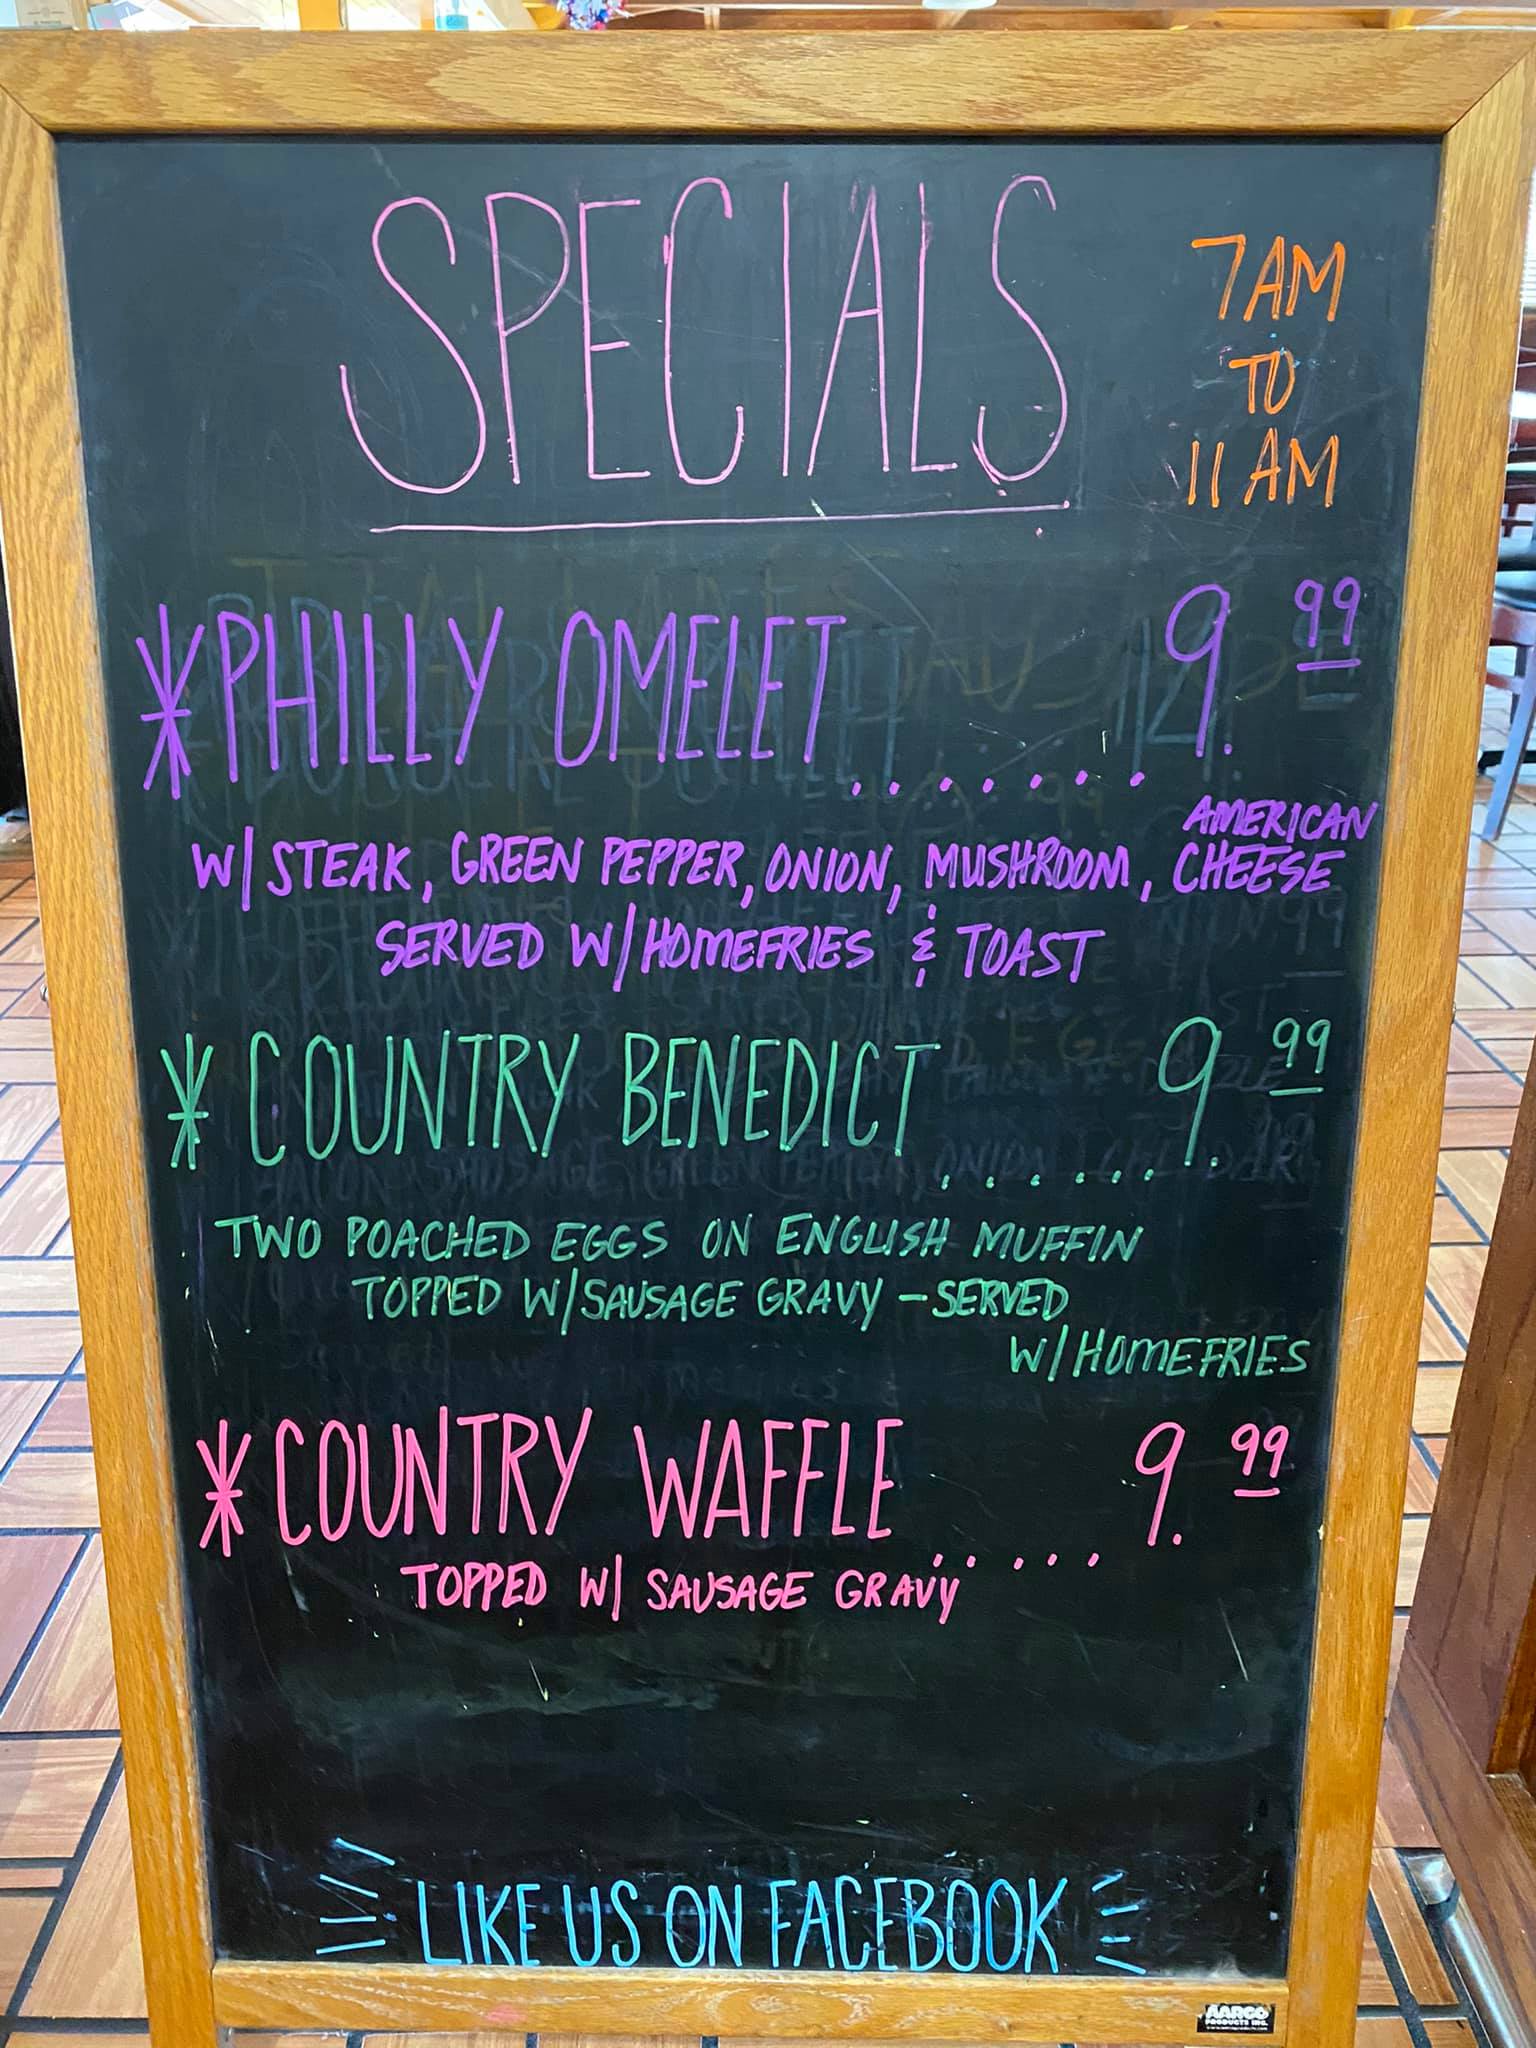 SPECIALS
7AM
TO
11 AM
*PHILLY OMELET........ 9.99
W/STEAK, GREEN PEPPER, ONION, MUSHROOM, AMERICAN CHEESE
SERVED W/HOMEFRIES & TOAST
* COUNTRY BENEDICT...... 9.99
TWO POACHED EGGS ON ENGLISH MUFFIN
TOPPED W/SAUSAGE GRAVY - SERVED
W/HOMEFRIES
* COUNTRY WAFFLE...... 9.99
TOPPED W/ SAUSAGE GRAVY
LIKE US ON FACEBOOK
AARCO
PRODUCTS INC.